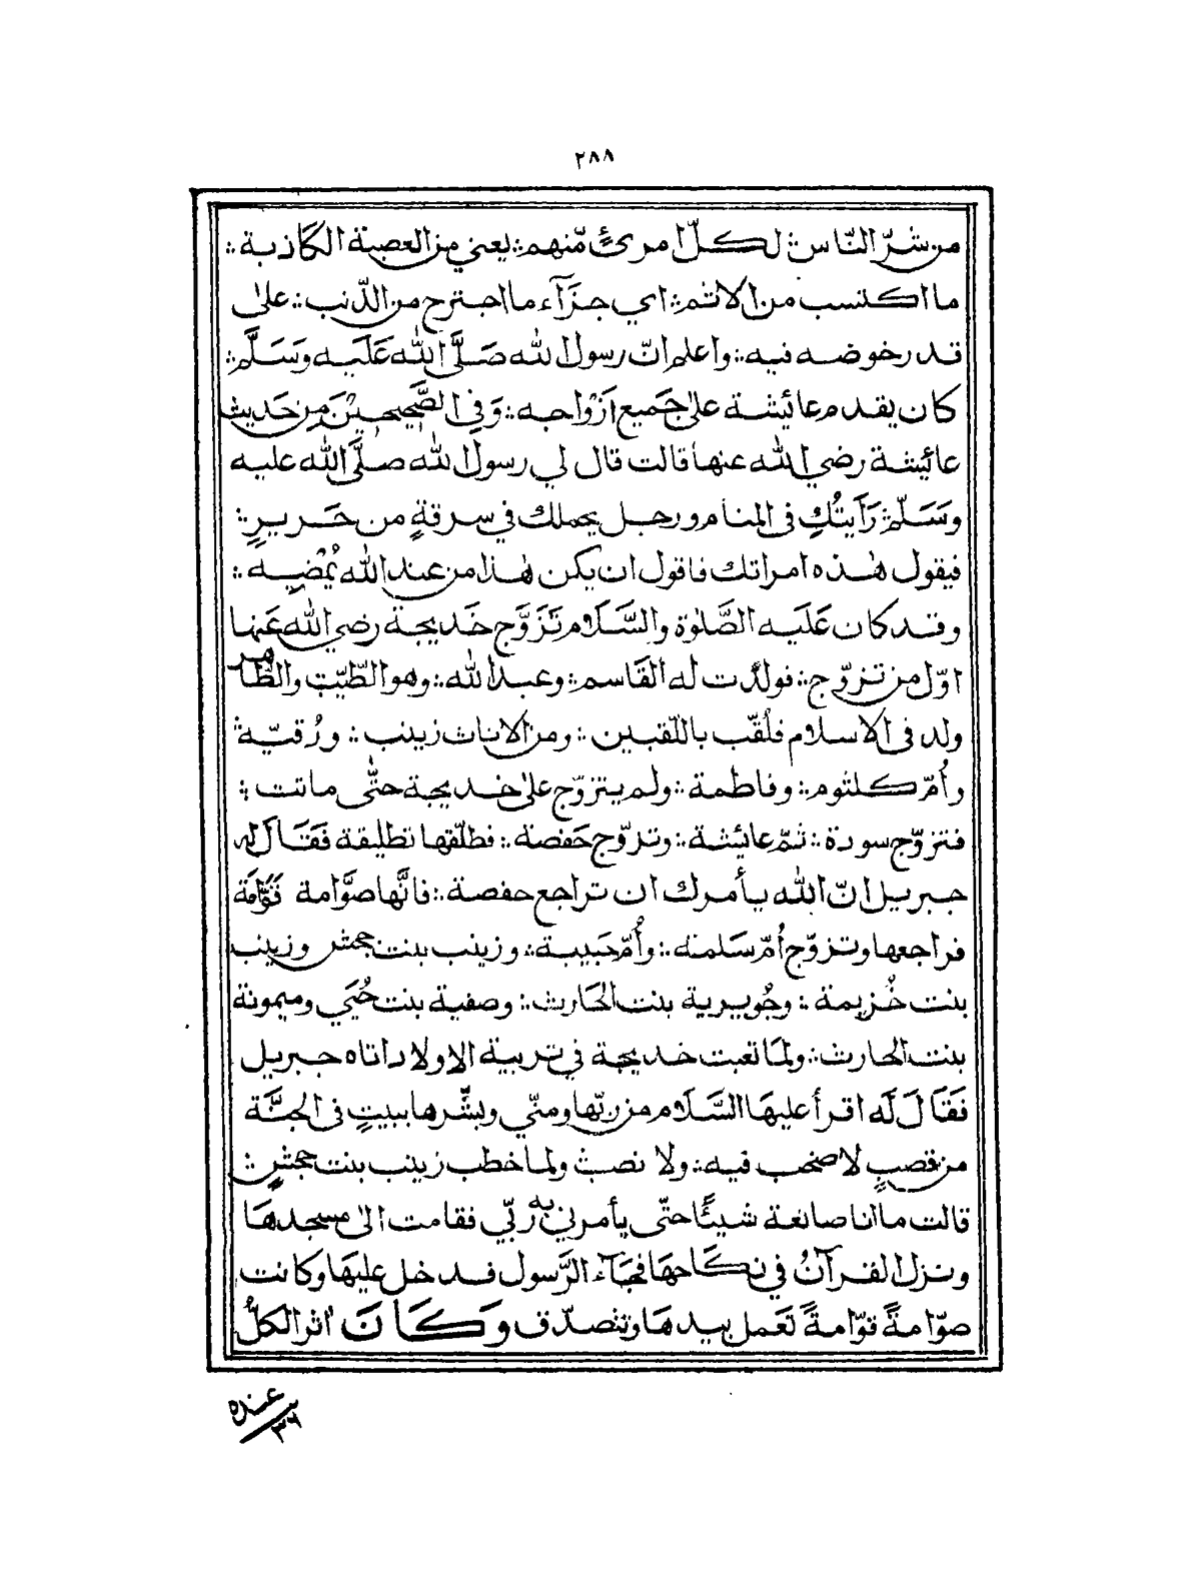 ٢٨٨
من شرّ النّاس ⁘ لكلّ امرئٍ مّنهم ⁘ يعني من العصبة الكاذبة ⁘
ما اكتسب من الاثم ⁘ اي جزآء ما اجترح من الذّنب ⁘ على
قدر خوضه فيه ⁘ واعلم انّ رسول الله صَلَّى الله عَلَيه وَسَلَّم ⁘
كان يقدم عائيشة على جَميع ازْواجه ⁘ وَفي الصَّحيحيْنَ من حَديث
عائيشة رضي الله عنها قالت قال لي رسول الله صلَّى الله عليه
وَسَلّم ⁘ رَاَيتُكِ فى المنام ورجل يحملك في سرقةٍ من حَريرٍ ⁘
فيقول هٰذه امراتك فاقول ان يكن هٰذا من عند الله يُمْضيه ⁘
وقد كان عَلَيه الصَّلوٰة والسَّلَام تَزَوَّج خَديجة رضي الله عَنها
اوّل من تزوّج ⁘ فولدت له القَاسم ⁘ وعبد الله ⁘ وهو الطّيّب والطّاهر
ولد فى الاسلام فلُقّب باللّقبين ⁘ ومن الاناث زينب ⁘ ورُقيّة ⁘
وأُمّ كلثوم ⁘ وفاطمة ⁘ ولم يتزوّج على خديجة حتّٰى ماتت ⁘
فتزوّج سودة ⁘ ثمّ عائيشة ⁘ وتزوّج حَفصة ⁘ فطلّقها تطليقة فَقَالَ له
جبريل انّ الله يأمرك ان تراجع حفصة ⁘ فانَّها صوَّامة قَوَّامَة
فراجعها وتزوّج أُمّ سَلمة ⁘ وأُمّ حَبيبة ⁘ وزينب بنت جحش وزينب
بنت خُزيمة ⁘ وجُويرية بنت الحَارث ⁘ وصفية بنت حُيَي وميمونة
بنت الحارث ⁘ ولمّا تعبت خديجة في تربية الاولاد اتاه جبريل
فَقَالَ لَه اقرأ عليهَا السَّلَام من ربّها ومنّي وبشّرها ببيتٍ فى الجنَّة
من قصبٍ لا صخب فيه ⁘ ولا نصب ⁘ ولما خطب زينب بنت جحشٍ ⁘
قالت ما انا صانعة شيئًا حتّى يأمرني به ربّي فقامت الى مسجدهَا
ونزل القرآنُ في نكَاحهَا فجَآء الرَّسول فدخل عليهَا وكانت
صوّامةً قوّامةً تَعمل بيدهَا وتتصدّق وَكَانَ اثر الكلُّ
عنده
٣٦